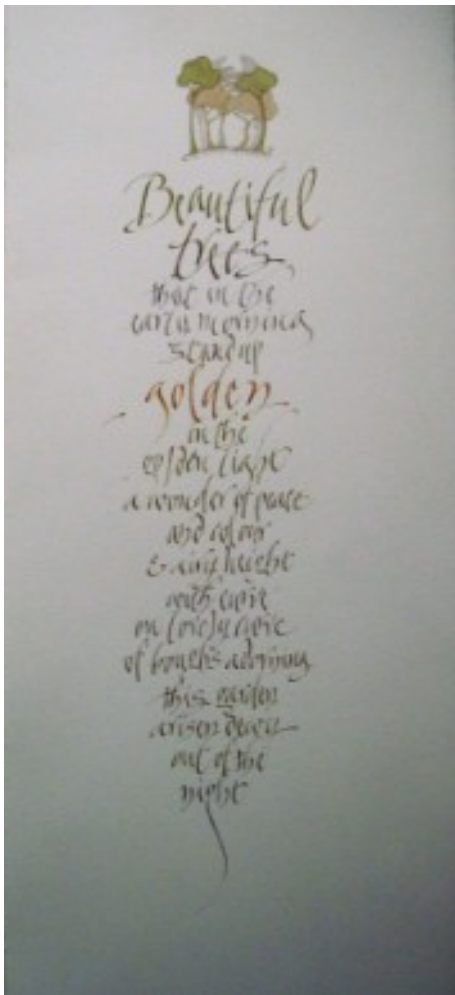 Beautiful
trees
that in the
early morning
stand up
golden
in the
golden light
a wonder of peace
and colour
& airy height
with curve
on lovely curve
of boughs adorning
this garden
arisen
out of the
night